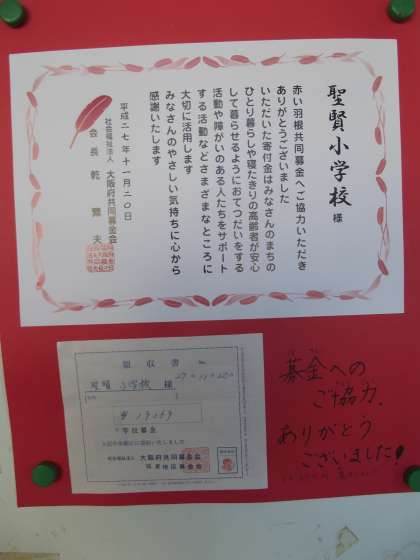 聖賢小学校 様
赤い羽根共同募金へご協力いただき
ありがとうございました
いただいた寄付金はみなさんのまちの
ひとり暮らしや寝たきりの高齢者が安心
して暮らせるようにおてつだいをする
活動や障がいのある人たちをサポート
する活動などさまざまなところに
大切に活用します
みなさんのやさしい気持ちに心から
感謝いたします
平成二七年十一月二〇日
社会福祉法人 大阪府共同募金会
会長 乾 繁夫
領収書
聖賢小学校 様
学校募金
社会福祉法人 大阪府共同募金会
地区募金会
募金への
ご協力、
ありがとう
ございました!